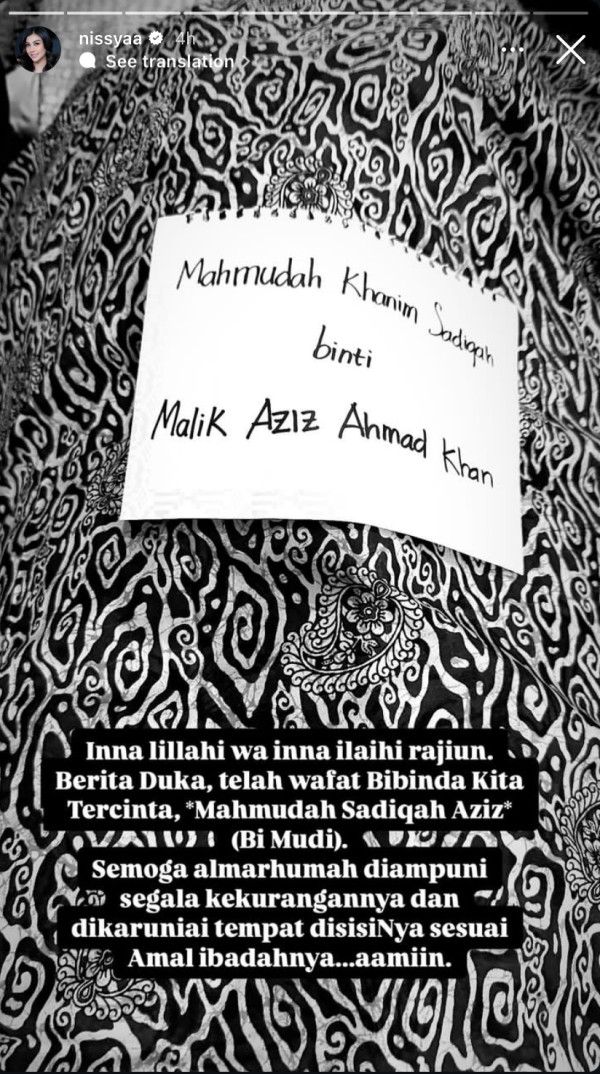 nissyaa 4h
See translation
Mahmudah Khanim Sadiqah
binti
Malik Aziz Ahmad Khan
Inna lillahi wa inna ilaihi rajiun.
Berita Duka, telah wafat Bibinda Kita
Tercinta, *Mahmudah Sadiqah Aziz*
(Bi Mudi).
Semoga almarhumah diampuni
segala kekurangannya dan
dikaruniai tempat disisiNya sesuai
Amal ibadahnya...aamiin.